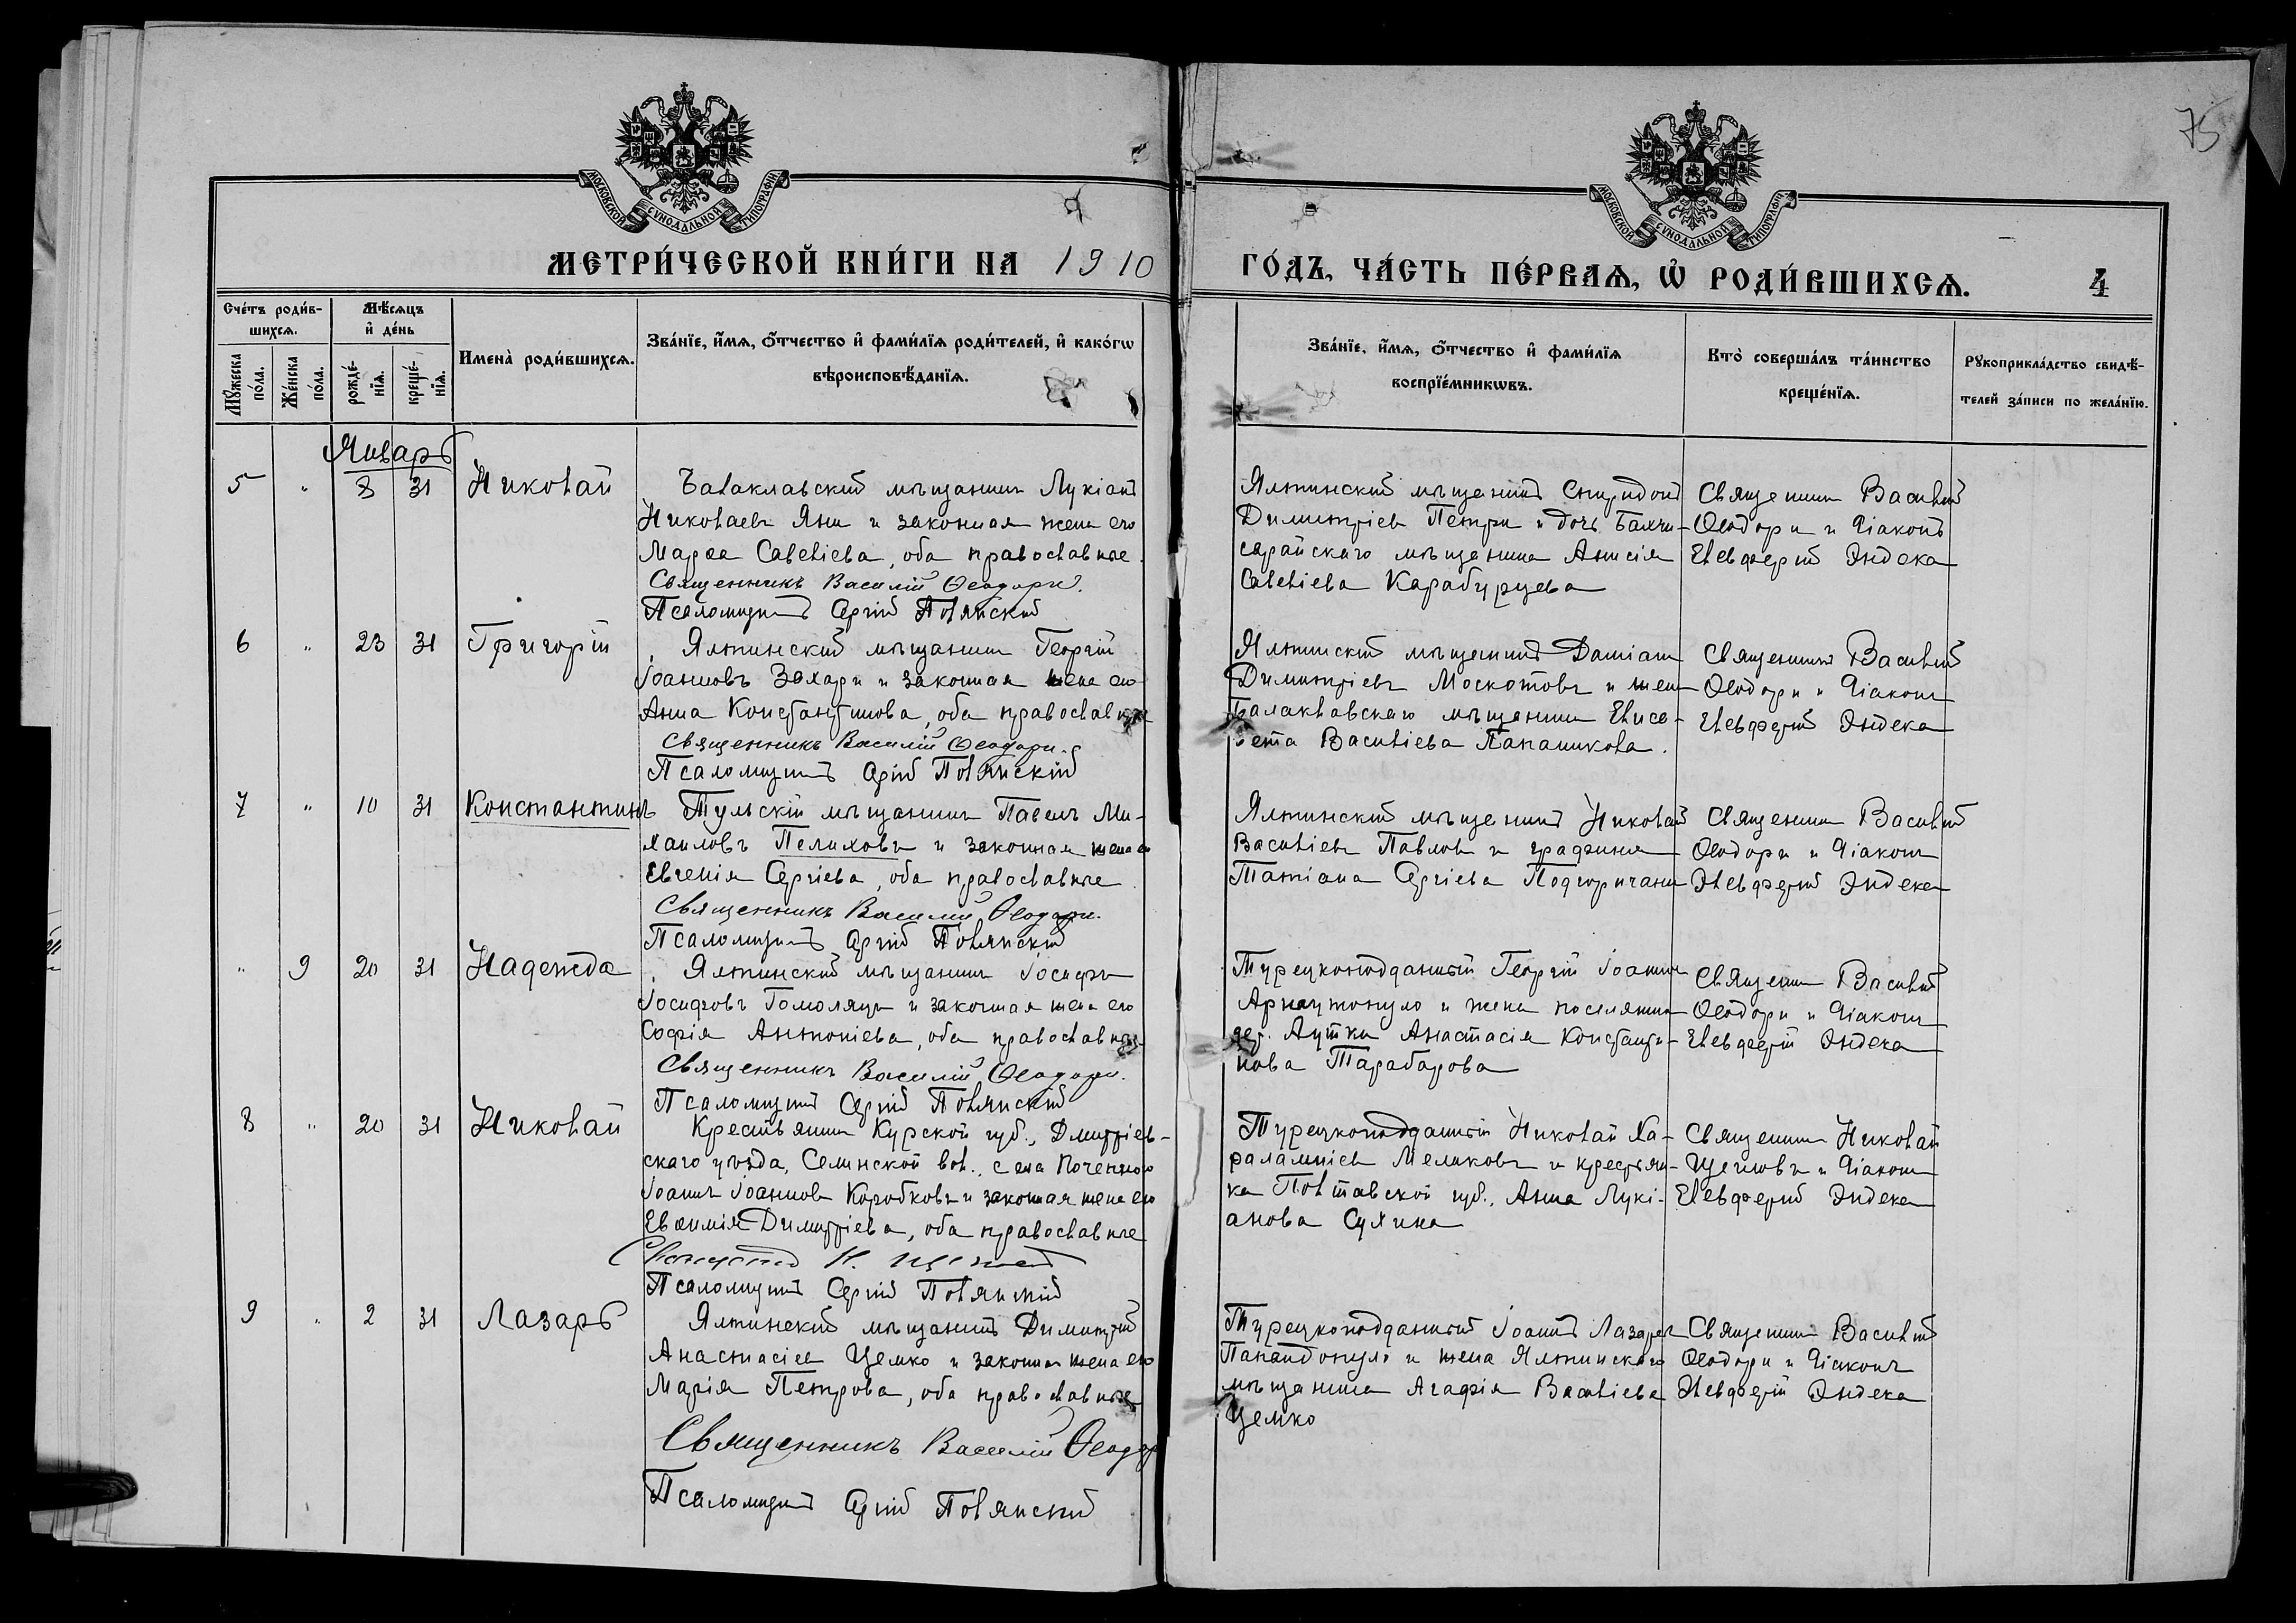 75
МОСКОВСКОЙ СУНОДАЛЬНОЙ ТИПОГРАФІИ
МОСКОВСКОЙ СУНОДАЛЬНОЙ ТИПОГРАФІИ
МЕТРИ́ЧЕСКОЙ КНИ́ГИ НА 1910
ГО́ДЪ, ЧА́СТЬ ПЕ́РВАѦ, Ѡ҆ РОДИ́ВШИХСѦ.
4
Сче́тъ роди́в-
шихсѧ.
Мꙋ́жеска по́ла.
Же́нска по́ла.
Мѣ́сѧцъ
и҆ де́нь
рожде́-
нїѧ.
креще́-
нїѧ.
Имена̀ роди́вшихсѧ.
Зва́нїе, и҆́мѧ, ѻ҆́тчество и҆ фами́лїѧ роди́телей, и҆ како́гѡ
вѣроисповѣ́данїѧ.
Зва́нїе, и҆́мѧ, ѻ҆́тчество и҆ фами́лїѧ
воспрїе́мникѡвъ.
Кто̀ соверша́лъ та́инство
креще́нїѧ.
Рꙋкоприкла́дство свидѣ́-
телей за́писи по жела́нїю.
Январь
5 " 8 31 Николай
Балаклавский мѣщанинъ Лукіанъ
Николаевъ Яни и законная жена его
Марѳа Савельева, оба православные.
Священникъ Василій Ѳеодори.
Псаломщикъ Сергій Полянскій
Ялтинский мѣщанинъ Спиридонъ
Димитріевъ Петри и дочь Бахчи-
сарайскаго мѣщанина Анисія
Савельева Карабурцева
Священникъ Василій
Ѳеодори и діаконъ
Елевферій Эндека
6 " 23 31 Григорій
Ялтинский мѣщанинъ Георгій
Іоанновъ Захари и законная жена его
Анна Константинова, оба православные
Священникъ Василій Ѳеодори.
Псаломщикъ Сергій Полянскій
Ялтинский мѣщанинъ Даміанъ
Димитріевъ Москотовъ и жена
Балаклавскаго мѣщанина Елиса-
вета Васильева Папаникова.
Священникъ Василій
Ѳеодори и діаконъ
Елевферій Эндека
7 " 10 31 Константинъ
Тульскій мѣщанинъ Павелъ Ми-
хаиловъ Пелиховъ и законная жена его
Евгенія Сергіева, оба православные
Священникъ Василій Ѳеодори.
Псаломщикъ Сергій Полянскій
Ялтинский мѣщанинъ Николай
Васильевъ Павловъ и графиня
Татіана Сергіева Подгоричани
Священникъ Василій
Ѳеодори и діаконъ
Элевферій Эндека
" 9 20 31 Надежда
Ялтинский мѣщанинъ Іосифъ
Іосифовъ Гомоляцъ и законная жена его
Софія Антоніева, оба православные
Священникъ Василій Ѳеодори.
Псаломщикъ Сергій Полянскій
Турецкоподданный Георгій Іоанновъ
Арнаутопуло и жена поселянина
дер. Аутки Анастасія Константи-
нова Тарабарова
Священникъ Василій
Ѳеодори и діаконъ
Елевферій Эндека
8 " 20 31 Николай
Крестьянинъ Курской губ., Дмитріев-
скаго уѣзда, Селинской вол., села
Іоаннъ Іоанновъ Коробковъ и законная жена его
Евѳимія Димитріева, оба православные
Псаломщикъ Сергій Полянскій
Турецкоподданный Николай Ха-
ралампіевъ Меликовъ и крестьян-
ка Полтавской губ. Анна Лукі-
анова Сухина
Священникъ Николай
Щегловъ и діаконъ
Елевферій Эндека
9 " 2 31 Лазарь
Ялтинский мѣщанинъ Димитрій
Анастасіев Цемко и законная жена его
Марія Петрова, оба православные
Священникъ Василій Ѳеодори
Псаломщикъ Сергій Полянскій
Турецкоподданный Іоаннъ Лазаревъ
Папандопуло и жена Ялтинскаго
мѣщанина Агафія Васильева
Цемко
Священникъ Василій
Ѳеодори и діаконъ
Элевферій Эндека